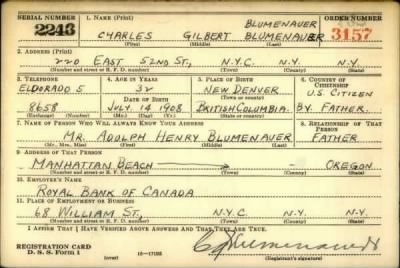 SERIAL NUMBER 1. NAME (Print) BLUMENAUER ORDER NUMBER
2243 CHARLES GILBERT BLUMENAUER 3157
(First) (Middle) (Last)
2. ADDRESS (Print)
220 EAST 52ND ST., N.Y.C. N.Y. N.Y.
(Number and street or R. F. D. number) (Town) (County) (State)
3. TELEPHONE 4. AGE IN YEARS 5. PLACE OF BIRTH 6. COUNTRY OF CITIZENSHIP
ELDORADO 5 32 NEW DENVER U.S. CITIZEN
DATE OF BIRTH (Town or county)
8658 JULY 14 1908 BRITISH COLUMBIA. BY FATHER.
(Exchange) (Number) (Mo.) (Day) (Yr.) (State or country)
7. NAME OF PERSON WHO WILL ALWAYS KNOW YOUR ADDRESS 8. RELATIONSHIP OF THAT PERSON
MR. ADOLPH HENRY BLUMENAUER FATHER
(Mr., Mrs., Miss) (First) (Middle) (Last)
9. ADDRESS OF THAT PERSON
MANHATTAN BEACH - OREGON
(Number and street or R. F. D. number) (Town) (County) (State)
10. EMPLOYER'S NAME
ROYAL BANK OF CANADA
11. PLACE OF EMPLOYMENT OR BUSINESS
68 WILLIAM ST, N.Y.C. N.Y. N.Y.
(Number and street or R. F. D. number) (Town) (County) (State)
I AFFIRM THAT I HAVE VERIFIED ABOVE ANSWERS AND THAT THEY ARE TRUE.
REGISTRATION CARD
D. S. S. Form 1 (over) 16-17105 (Registrant's signature)